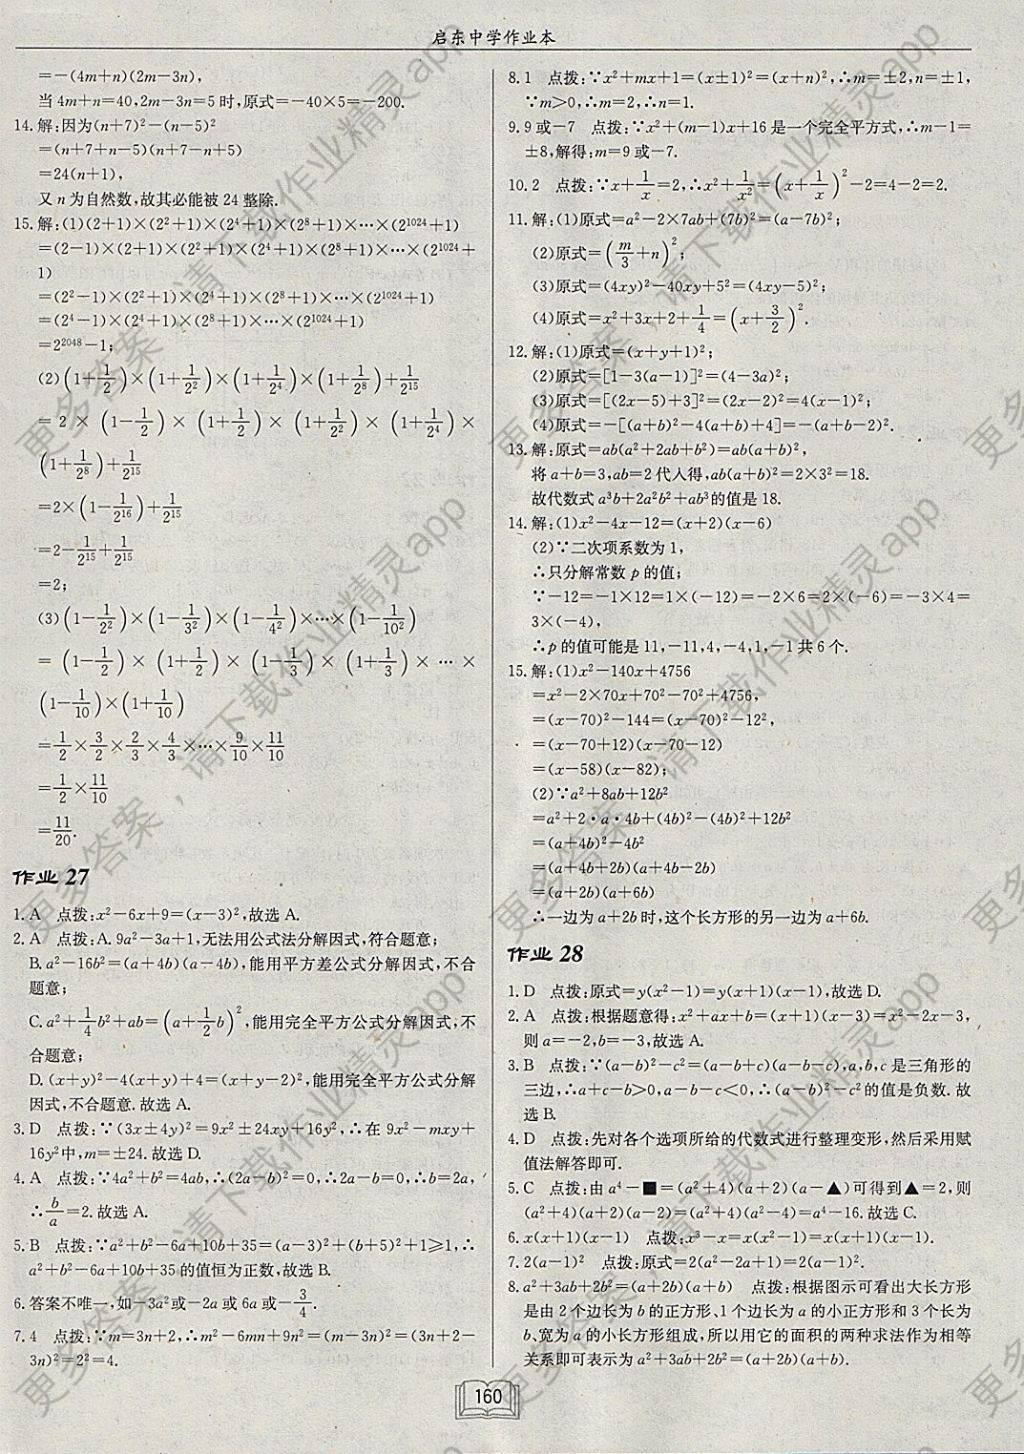 启东中学作业本
=-(4m+n)(2m-3n),
当4m+n=40,2m-3n=5时,原式=-40×5=-200.
14.解:因为(n+7)²-(n-5)²
=(n+7+n-5)(n+7-n+5)
=24(n+1),
又n为自然数,故其必能被24整除.
15.解:(1)(2+1)×(2²+1)×(2⁴+1)×(2⁸+1)×…×(2¹⁰²⁴+1)
=(2-1)×(2+1)×(2²+1)×(2⁴+1)×(2⁸+1)×…×(2¹⁰²⁴+
1)
=(2²-1)×(2²+1)×(2⁴+1)×(2⁸+1)×…×(2¹⁰²⁴+1)
=(2⁴-1)×(2⁴+1)×(2⁸+1)×…×(2¹⁰²⁴+1)
=2²⁰⁴⁸-1;
(2)(1+1/2)×(1+1/2²)×(1+1/2⁴)×(1+1/2⁸)+1/2¹⁵
=2×(1-1/2)×(1+1/2)×(1+1/2²)×(1+1/2⁴)×
(1+1/2⁸)+1/2¹⁵
=2×(1-1/2¹⁶)+1/2¹⁵
=2-1/2¹⁵+1/2¹⁵
=2;
(3)(1-1/2²)×(1-1/3²)×(1-1/4²)×…×(1-1/10²)
=(1-1/2)×(1+1/2)×(1-1/3)×(1+1/3)×…×
(1-1/10)×(1+1/10)
=1/2×3/2×2/3×4/3×…×9/10×11/10
=1/2×11/10
=11/20.
作业27
1.A 点拨:x²-6x+9=(x-3)²,故选A.
2.A 点拨:A.9a²-3a+1,无法用公式法分解因式,符合题意;
B.a²-16b²=(a+4b)(a-4b),能用平方差公式分解因式,不合
题意;
C.a²+1/4b²+ab=(a+1/2b)²,能用完全平方公式分解因式,不
合题意;
D.(x+y)²-4(x+y)+4=(x+y-2)²,能用完全平方公式分解
因式,不合题意.故选A.
3.D 点拨:∵(3x±4y)²=9x²±24xy+16y²,∴在9x²-mxy+
16y²中,m=±24.故选D.
4.A 点拨:∵4a²+b²=4ab,∴(2a-b)²=0,∴2a-b=0,∴b=2a,
∴b/a=2.故选A.
5.B 点拨:∵a²+b²-6a+10b+35=(a-3)²+(b+5)²+1≥1,∴
a²+b²-6a+10b+35的值恒为正数,故选B.
6.答案不唯一,如-3a²或-2a或6a或-3/4.
7.4 点拨:∵m=3n+2,∴m²-6mn+9n²=(m-3n)²=(3n+2-
3n)²=2²=4.
8.1 点拨:∵x²+mx+1=(x±1)²=(x+n)²,∴m=±2,n=±1,
∵m>0,∴m=2,∴n=1.
9.9或-7 点拨:∵x²+(m-1)x+16是一个完全平方式,∴m-1=
±8,解得:m=9或-7.
10.2 点拨:∵x+1/x=2,∴x²+1/x²=(x+1/x)²-2=4-2=2.
11.解:(1)原式=a²-2×7ab+(7b)²=(a-7b)²;
(2)原式=(m/3+n)²;
(3)原式=(4xy)²-40xy+5²=(4xy-5)²;
(4)原式=x²+3x+2+1/4=(x+3/2)².
12.解:(1)原式=(x+y+1)²;
(2)原式=[1-3(a-1)]²=(4-3a)²;
(3)原式=[(2x-5)+3]²=(2x-2)²=4(x-1)²;
(4)原式=-[(a+b)²-4(a+b)+4]=-(a+b-2)².
13.解:原式=ab(a²+2ab+b²)=ab(a+b)²,
将a+b=3,ab=2代人得,ab(a+b)²=2×3²=18.
故代数式a³b+2a²b²+ab³的值是18.
14.解:(1)x²-4x-12=(x+2)(x-6)
(2)∵二次项系数为1,
∴只分解常数p的值;
∵-12=-1×12=1×(-12)=-2×6=2×(-6)=-3×4=
3×(-4),
∴p的值可能是11,-11,4,-4,1,-1共6个.
15.解:(1)x²-140x+4756
=x²-2×70x+70²-70²+4756,
=(x-70)²-144=(x-70)²-12²,
=(x-70+12)(x-70-12)
=(x-58)(x-82);
(2)∵a²+8ab+12b²
=a²+2·a·4b+(4b)²-(4b)²+12b²
=(a+4b)²-4b²
=(a+4b+2b)(a+4b-2b)
=(a+2b)(a+6b)
∴一边为a+2b时,这个长方形的另一边为a+6b.
作业28
1.D 点拨:原式=y(x²-1)=y(x+1)(x-1),故选D.
2.A 点拨:根据题意得:x²+ax+b=(x+1)(x-3)=x²-2x-3,
则a=-2,b=-3,故选A.
3.B 点拨:∵(a-b)²-c²=(a-b+c)(a-b-c),a,b,c是三角形的
三边,∴a+c-b>0,a-b-c<0,∴(a-b)²-c²的值是负数.故
选B.
4.D 点拨:先对各个选项所给的代数式进行整理变形,然后采用赋
值法解答即可.
5.C 点拨:由a⁴-■=(a²+4)(a+2)(a-▲)可得到▲=2,则
(a²+4)(a+2)(a-2)=(a²+4)(a²-4)=a⁴-16.故选C.
6.x(x+1)(x-1) 点拨:x³-x=x(x²-1)=x(x+1)(x-1).
7.2(a-1)² 点拨:原式=2(a²-2a+1)=2(a-1)².
8.a²+3ab+2b²=(a+2b)(a+b) 点拨:根据图示可看出大长方形
是由2个边长为b的正方形、1个边长为a的小正方形和3个长为
b、宽为a的小长方形组成,所以用它的面积的两种求法作为相等
关系即可表示为a²+3ab+2b²=(a+2b)(a+b).
160
更多答案,请下载作业精灵app
更多答案,请下载作业精灵app
更多答案,请下载作业精灵app
更多答案,请下载作业精灵app
更多答案,请下载作业精灵app
更多答案,请下载作业精灵app